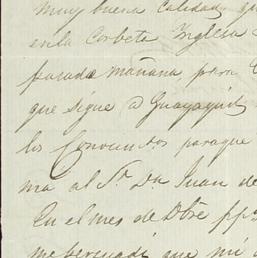 muy buena calidad, que
en la Corbeta Inglesa
pasado mañana para
que sigue a Guayaquil
los Conocimtos para que
ma al Sr. Dn Juan de
En el mes de Dbre ppº
me persuadí que mi